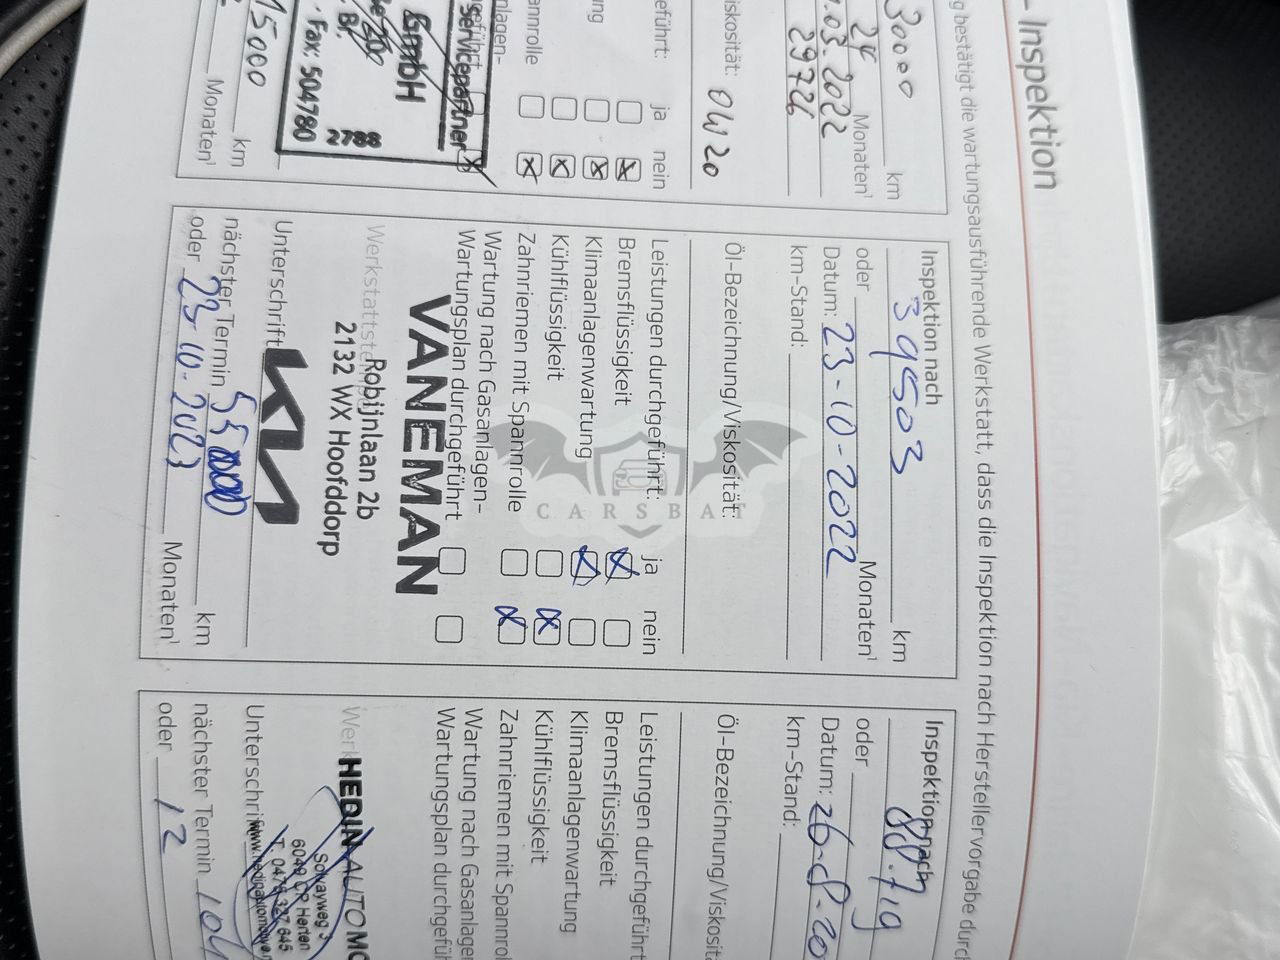 - Inspektion
g bestätigt die wartungsausführende Werkstatt, dass die Inspektion nach Herstellervorgabe durch
30000 km
24 Monaten¹
.03.2022
29726
iskosität: 0W20
ja nein
eführt:
ng
annrolle
nlagen-
eführt
Servicepartner
GmbH
Fax: 504780
2788
15000 km
Monaten¹
Inspektion nach
39503 km
oder Monaten¹
Datum: 23-10-2022
km-Stand:
Öl-Bezeichnung/Viskosität:
CARSBAT
Leistungen durchgeführt: ja nein
Bremsflüssigkeit
Klimaanlagenwartung
Kühlflüssigkeit
Zahnriemen mit Spannrolle
Wartung nach Gasanlagen-
Wartungsplan durchgeführt
VANEMAN
Robijnlaan 2b
2132 WX Hoofddorp
Unterschrift
KIA
nächster Termin km
oder 23-10-2023 Monaten¹
Inspektion nach
oder
Datum: 26-8-20
km-Stand:
Öl-Bezeichnung/Viskosität
Leistungen durchgeführt
Bremsflüssigkeit
Klimaanlagenwartung
Kühlflüssigkeit
Zahnriemen mit Spannrol
Wartung nach Gasanlagen
Wartungsplan durchgefüh
HEDIN AUTOMO
Solvayweg 3
6049 CP Herten
T. 0475 327 645
Unterschrift
nächster Termin 104
oder 12